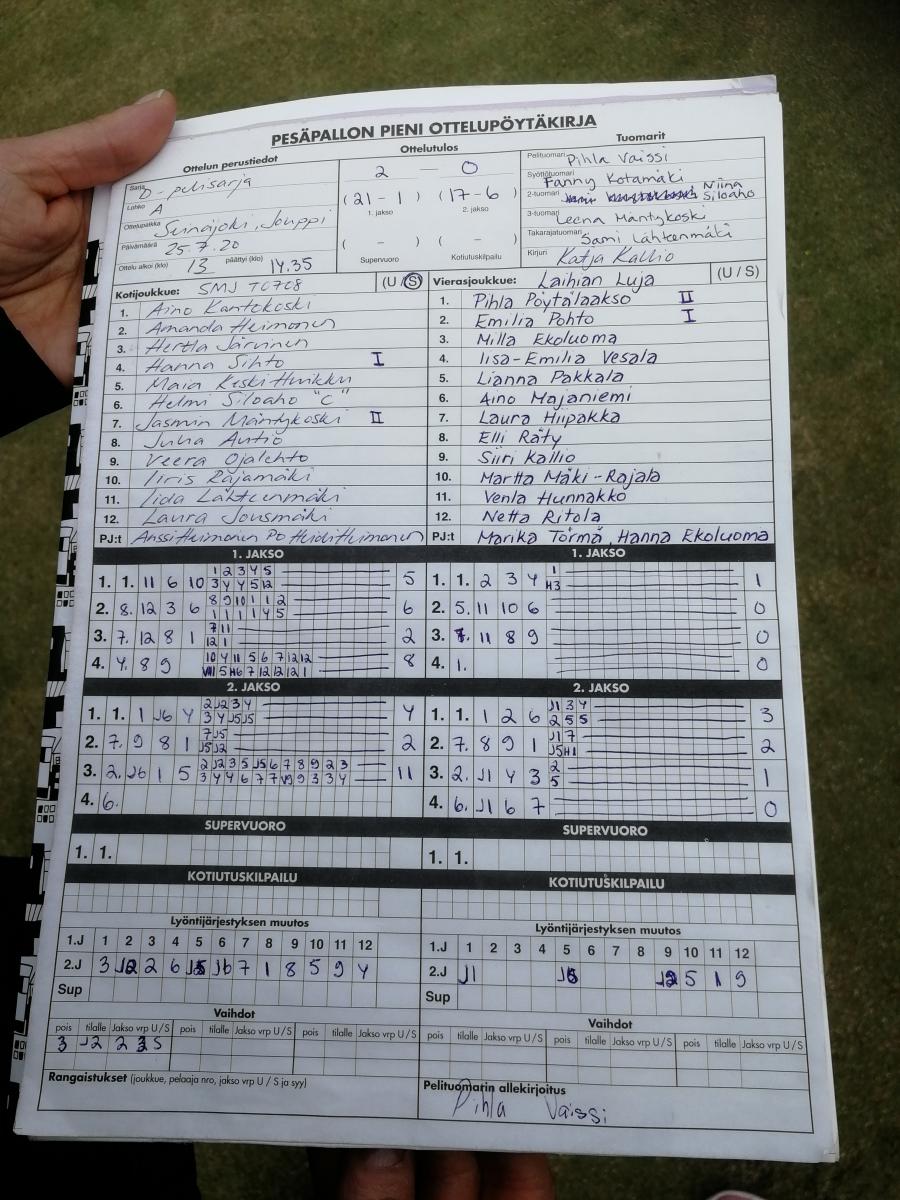 PESÄPALLON PIENI OTTELUPÖYTÄKIRJA
Ottelun perustiedot
Sarja D-pelisarja
Lohko A
Ottelupaikka Seinäjoki, Jouppi
Päivämäärä 25.7.20
Ottelu alkoi (klo) 13 päättyi (klo) 14.35
Ottelutulos
2 — 0
(21 - 1) (17 - 6)
1. jakso 2. jakso
( - ) ( - )
Supervuoro Kotiutuskilpailu
Tuomarit
Pelituomari Pihla Vaissi
Syöttötuomari Fanny Kotamäki
2-tuomari Niina Siloaho
3-tuomari Leena Mäntykoski
Takarajatuomari Sami Lähteenmäki
Kirjuri Katja Kallio
Kotijoukkue: SMJ T0708 (U / S)
1. Aino Kantokoski
2. Amanda Heimonen
3. Hertta Järvinen
4. Hanna Sihto I
5. Maia Keski-Huikku
6. Helmi Siloaho "C"
7. Jasmin Mäntykoski II
8. Julia Autio
9. Veera Ojalehto
10. Iiris Räjamäki
11. Iida Lähteenmäki
12. Laura Jousmäki
PJ:t Anssi Heimonen PO Heidi Heimonen
Vierasjoukkue: Laihian Luja (U / S)
1. Pihla Pöytälaakso II
2. Emilia Pohto I
3. Milla Ekoluoma
4. Iisa-Emilia Vesala
5. Lianna Pakkala
6. Aino Majaniemi
7. Laura Hiipakka
8. Elli Räty
9. Siiri Kallio
10. Martta Mäki-Rajala
11. Venla Hunnakko
12. Netta Ritola
PJ:t Marika Törmä, Hanna Ekoluoma
1. JAKSO
1. 1. 11 6 10 1 2 3 4 5 5
3 4 4 5 12
2. 8. 12 3 6 8 9 10 1 1 2 6
1 1 1 1 4 5
3. 7. 12 8 1 7 11 2
12 1
4. 4. 8 9 10 4 11 5 6 7 12 12 8
5 H6 7 12 12 12 1
2. JAKSO
1. 1. 1 J6 4 2 J2 3 4 4
3 4 J5 J5
2. 7. 9 8 1 7 J5 2
J5 J2
3. 2. J6 1 5 2 J2 3 5 J5 6 7 8 9 2 3 11
3 4 4 6 7 7 9 3 3 4
4. 6.
SUPERVUORO
1. 1.
KOTIUTUSKILPAILU
Lyöntijärjestyksen muutos
1.J 1 2 3 4 5 6 7 8 9 10 11 12
2.J 3 J2 2 6 J5 J6 7 1 8 5 9 4
Sup
Vaihdot
pois tilalle Jakso vrp U/S pois tilalle Jakso vrp U/S pois tilalle Jakso vrp U/S
3 J2 2 3 S
Rangaistukset (joukkue, pelaaja nro, jakso vrp U / S ja syy)
1. JAKSO
1. 1. 2 3 4 1 1
H3
2. 5. 11 10 6 0
3. 7. 11 8 9 0
4. 1. 0
2. JAKSO
1. 1. 1 2 6 J1 3 4 3
2 5 5
2. 7. 8 9 1 J1 7 2
J5 H1
3. 2. J1 4 3 2 1
5
4. 6. J1 6 7 0
SUPERVUORO
1. 1.
KOTIUTUSKILPAILU
Lyöntijärjestyksen muutos
1.J 1 2 3 4 5 6 7 8 9 10 11 12
2.J J1 J5 J2 5 1 9
Sup
Vaihdot
pois tilalle Jakso vrp U/S pois tilalle Jakso vrp U/S pois tilalle Jakso vrp U/S
Pelituomarin allekirjoitus
Pihla Vaissi